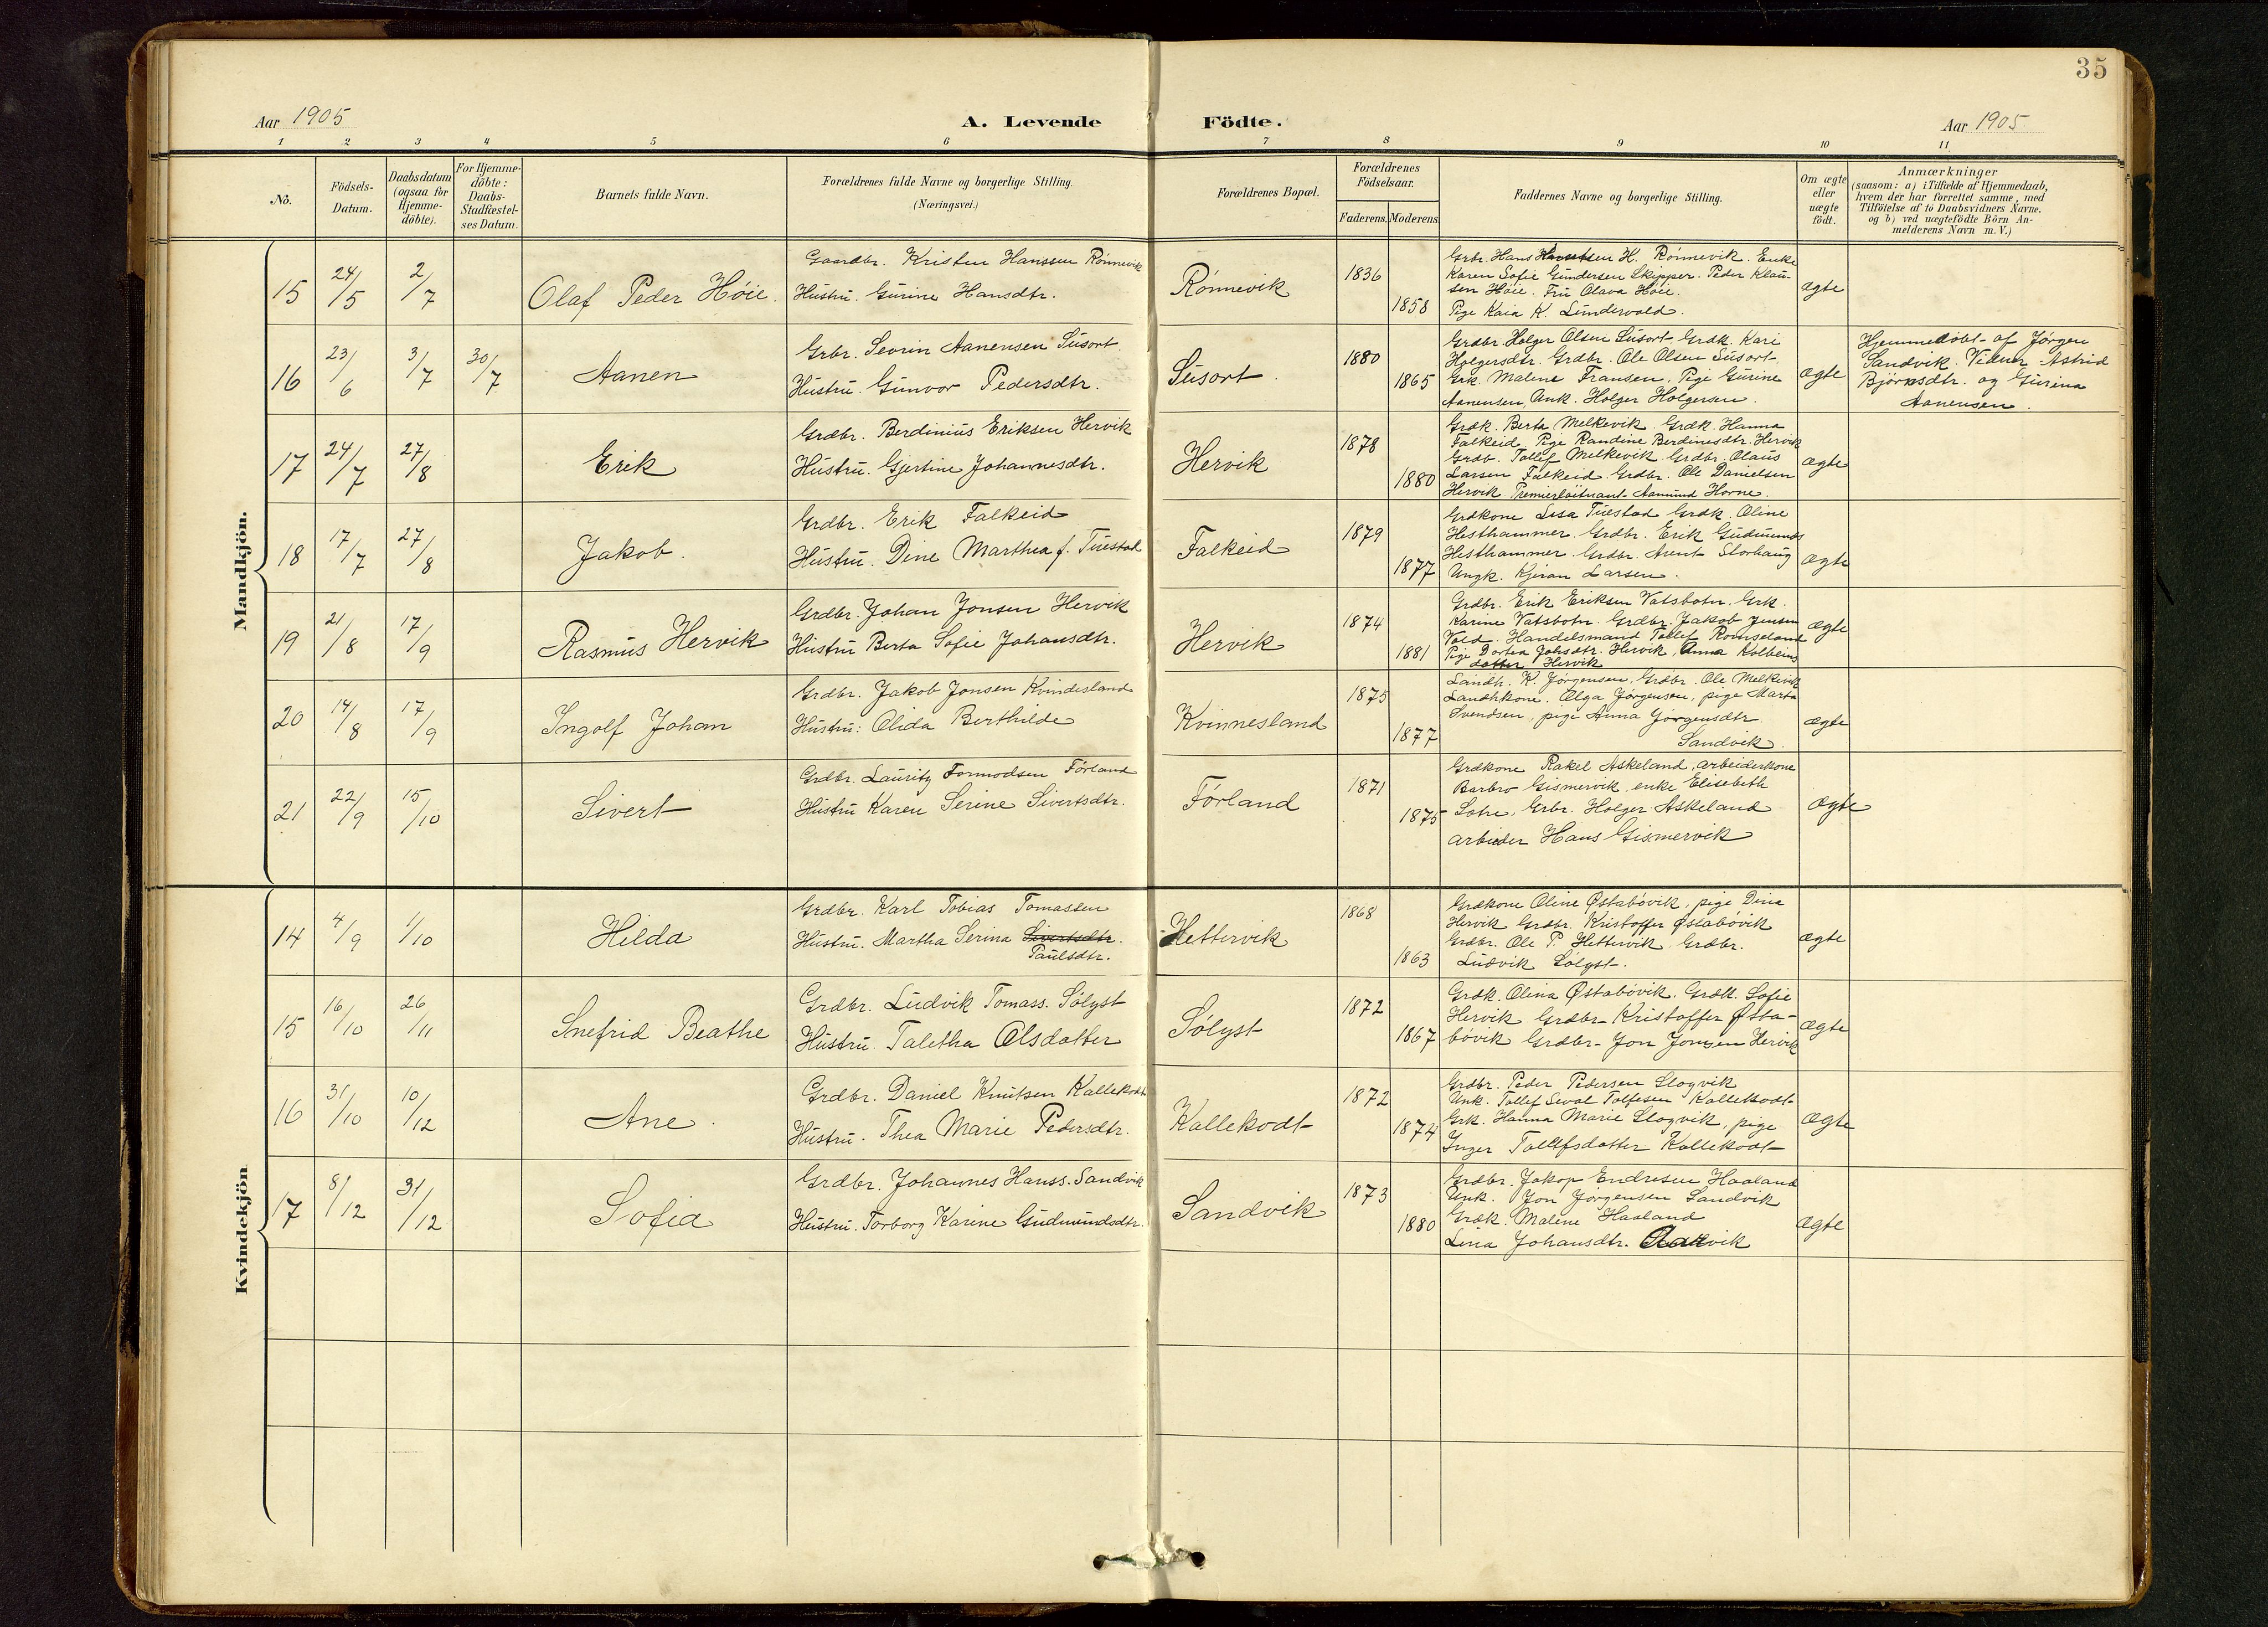 35
Aar 1905
A. Levende Födte.
Aar 1905
1 2 3 4 5 6 7 8 9 10 11
No.
Födsels-
Datum.
Daabsdatum
(ogsaa for
Hjemme-
döbte).
For Hjemme-
döbte:
Daabs-
Stadfæstel-
ses Datum.
Barnets fulde Navn.
Forældrenes fulde Navne og borgerlige Stilling.
(Næringsvei.)
Forældrenes Bopæl.
Forældrenes
Födselsaar.
Faderens. Moderens.
Faddernes Navne og borgerlige Stilling.
Om ægte
eller
uægte
födt.
Anmærkninger
(saasom: a) i Tilfælde af Hjemmedaab,
hvem der har forrettet samme, med
Tilföielse af to Daabsvidners Navne,
og b) ved uægtefödte Börn An-
melderens Navn m. V.)
Mandkjön.
15 24/5 2/7 Olaf Peder Höie.
Gaardbr. Kristen Hanssen Rönnevik
Hustru. Gurine Hansdtr.
Rönnevik 1836 1858
Grbr. Hans H. Rönnevik. Enke
Karen Sofie Gundersen Skipper. Peder Klau-
sen Höie. Fru Olava Höie.
Pige Kaia K. Lundewold.
ægte
16 23/6 3/7 30/7 Aanen
Grbr. Sevrin Aanensen Susort
Hustru. Gunvor Pedersdtr.
Susort. 1880 1865
Grdbr. Holger Olsen Susort. Grdk. Kari
Holgersdtr. Grdbr. Ole Olsen Susort
Grk. Malene Fransen, Pige Gurine
Aanensen, Unk. Holger Holgersen.
ægte
Hjemmedöbt af Jörgen
Sandvik. Vidner Astrid
Björnsdtr. og Gurina
Aanensen.
17 24/7 27/8 Erik
Grdbr. Berdinius Eriksen Hervik
Hustru. Gjertine Johannesdtr.
Hervik 1878 1880
Grdk. Berta Melkevik Grdk. Hanna
Falkeid. Pige Randine Berdinesdtr. Hervik
Grdb. Tollef Melkevik Grdbr. Olaus
Larsen Falkeid. Grdbr. Ole Danielsen
Hervik Premierlöitnant Aamund Horne.
ægte
18 17/7 27/8 Jakob.
Grdbr. Erik Falkeid
Hustru. Dine Marthea f. Tuestad
Falkeid 1879 1877
Grdkone Lisa Tuestad Grdk. Oline
Hesthammer. Grdbr. Erik Gudmunds
Hesthammer. Grdbr. Arent Storhaug
Ungk. Kjeran Larsen.
ægte
19 21/8 17/9 Rasmus Hervik
Grdbr. Johan Jonsen Hervik
Hustru Berta Sofie Johansdtr.
Hervik 1874 1881
Grdbr. Erik Eriksen Vatsbotn. Grk.
Karine Vatsbotn. Grdbr. Jakob Jensen
Vold. Handelsmand Tollef Romseland
Pige Dortea Johsdtr. Hervik, Anna Kolbeins
datter Hervik
ægte
20 14/8 17/9 Ingolf Johan
Grdbr. Jakob Jonsen Kvindesland
Hustru: Olida Berthilde
Kvinnesland 1875 1877
Landh. K. Jörgensen, Grdbr. Ole Melkevik
Landhkone. Olga Jörgensen, pige Marta
Svendsen, pige Anna Jörgensdtr
Sandvik.
ægte
21 22/9 15/10 Sivert
Grdbr. Lauritz Tormodsen Förland
Hustru Karen Serine Sivertsdtr.
Förland 1871 1875
Grdkone Rakel Askeland, arbeiderkone
Barbro Gismervik, enke Elisebeth
Lotre, Grbr. Holger Askeland
arbeider Hans Gismervik
ægte
Kvindekjön
14 4/9 1/10 Hilda
Grdbr. Karl Tobias Tomassen
Hustru. Martha Serina Sivertsdtr.
Paulsdtr.
Hettervik 1868 1863
Grdkone Oline Østabövik, pige Dina
Hervik Grdbr. Kristoffer Østabövik
Grdbr. Ole P. Hettervik, Grdbr.
Ludvik Sölyst.
ægte
15 16/10 26/11 Snefrid Beathe
Grdbr. Ludvik Tomass. Sölyst
Hustru. Taletha Olsdatter
Sölyst 1872 1867
Grdk. Olina Østabövik. Grdk. Sofie
Hervik Grdbr. Kristoffer Østa-
bövik Grdbr. Jon Jonsen Hervik
ægte
16 31/10 10/12 Ane.
Grdbr. Daniel Knutsen Kallekodt
Hustru. Thea Marie Pedersdtr.
Kallekodt 1872 1874
Grdbr. Peder Pedersen Slogvik
Unk. Tollef Seval Tolfesen Kallekodt
Grk. Hanna Marie Slogvik, pige
Inger Tollefsdatter Kallekodt
ægte
17 8/12 31/12 Sofia
Grdbr. Johannes Hanss. Sandvik
Hustru. Torborg Karine Gudmundsdtr
Sandvik 1873 1880
Grdbr. Jakop Endresen Haaland
Unk. Jon Jörgensen Sandvik
Grdk. Malene Haaland
Lina Johansdtr.
ægte